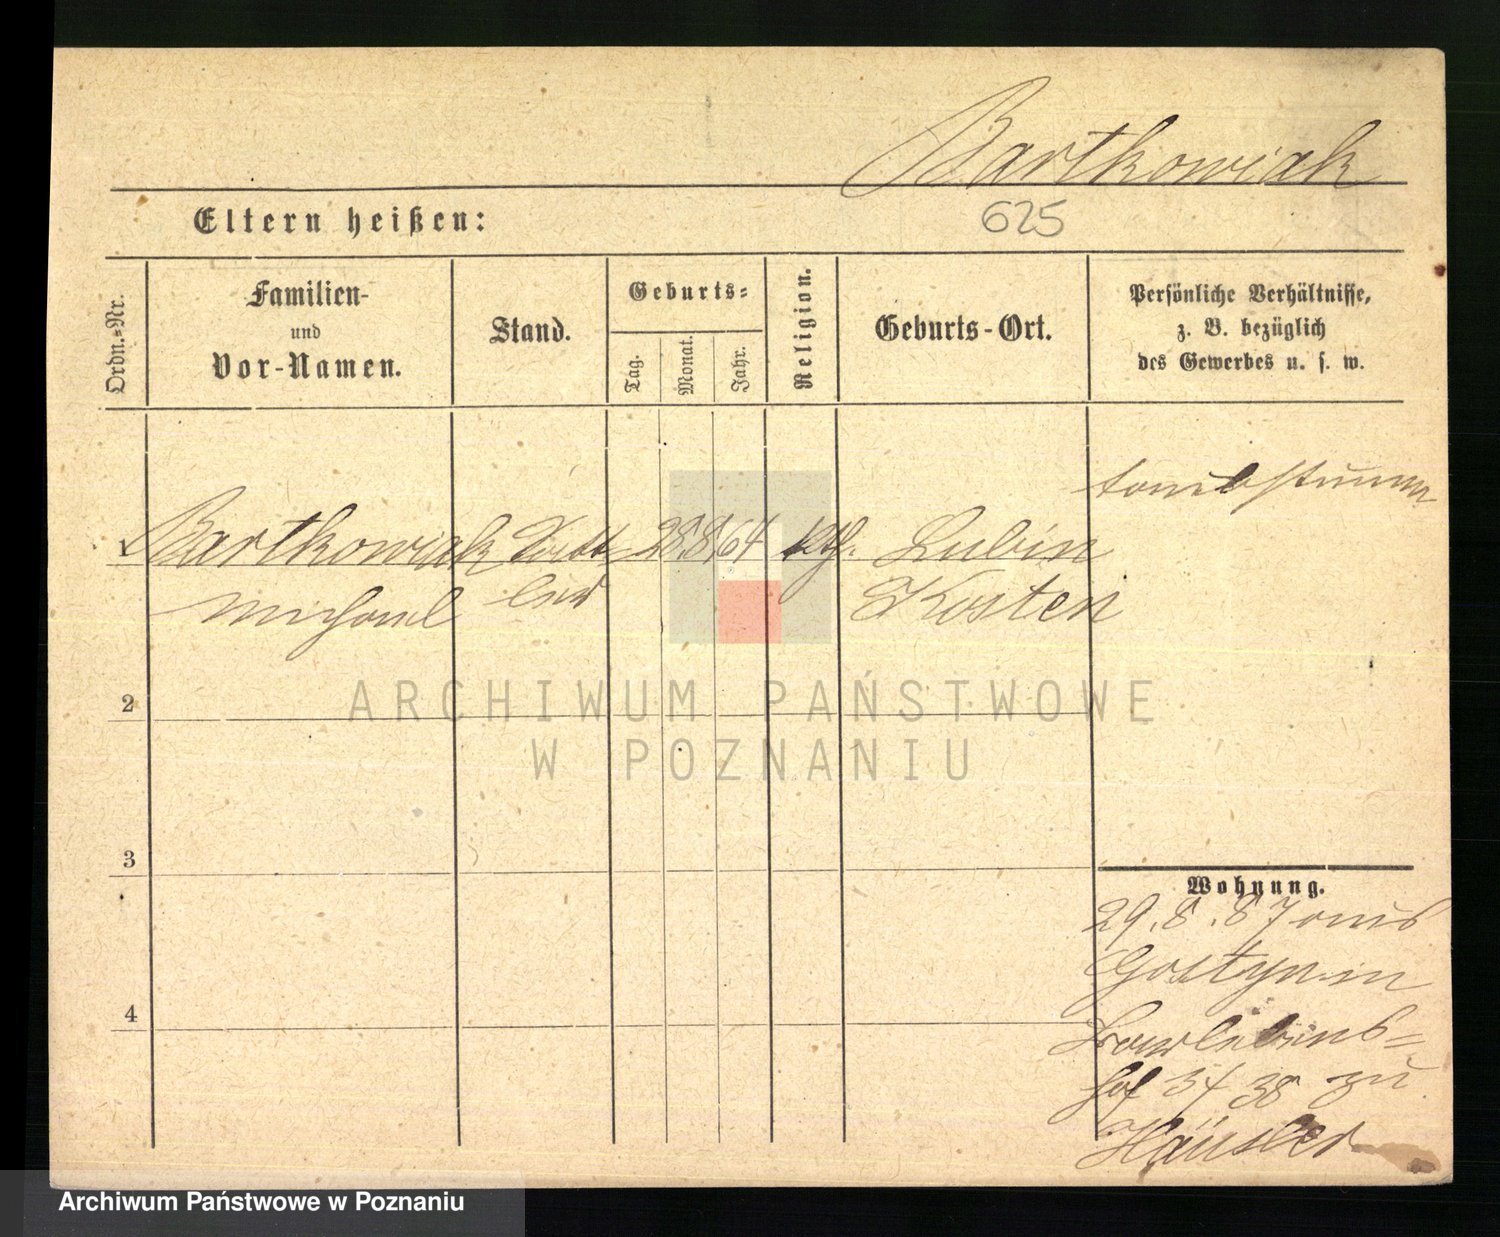 Bartkowiak
Eltern heißen:
625
Ordn.-Nr.
Familien-
und
Vor-Namen.
Stand.
Geburts-
Tag.
Monat.
Jahr.
Religion.
Geburts-Ort.
Persönliche Verhältnisse,
z. B. bezüglich
des Gewerbes u. s. w.
taubstumm
1 Bartkowiak 28. 8. 64 kth. Lubin
Michael Kosten
ARCHIWUM PAŃSTWOWE
W POZNANIU
2
3
4
Wohnung.
29. 8. 87 aus
Gostyn in
hof 34 38 zu
Häusler
Archiwum Państwowe w Poznaniu